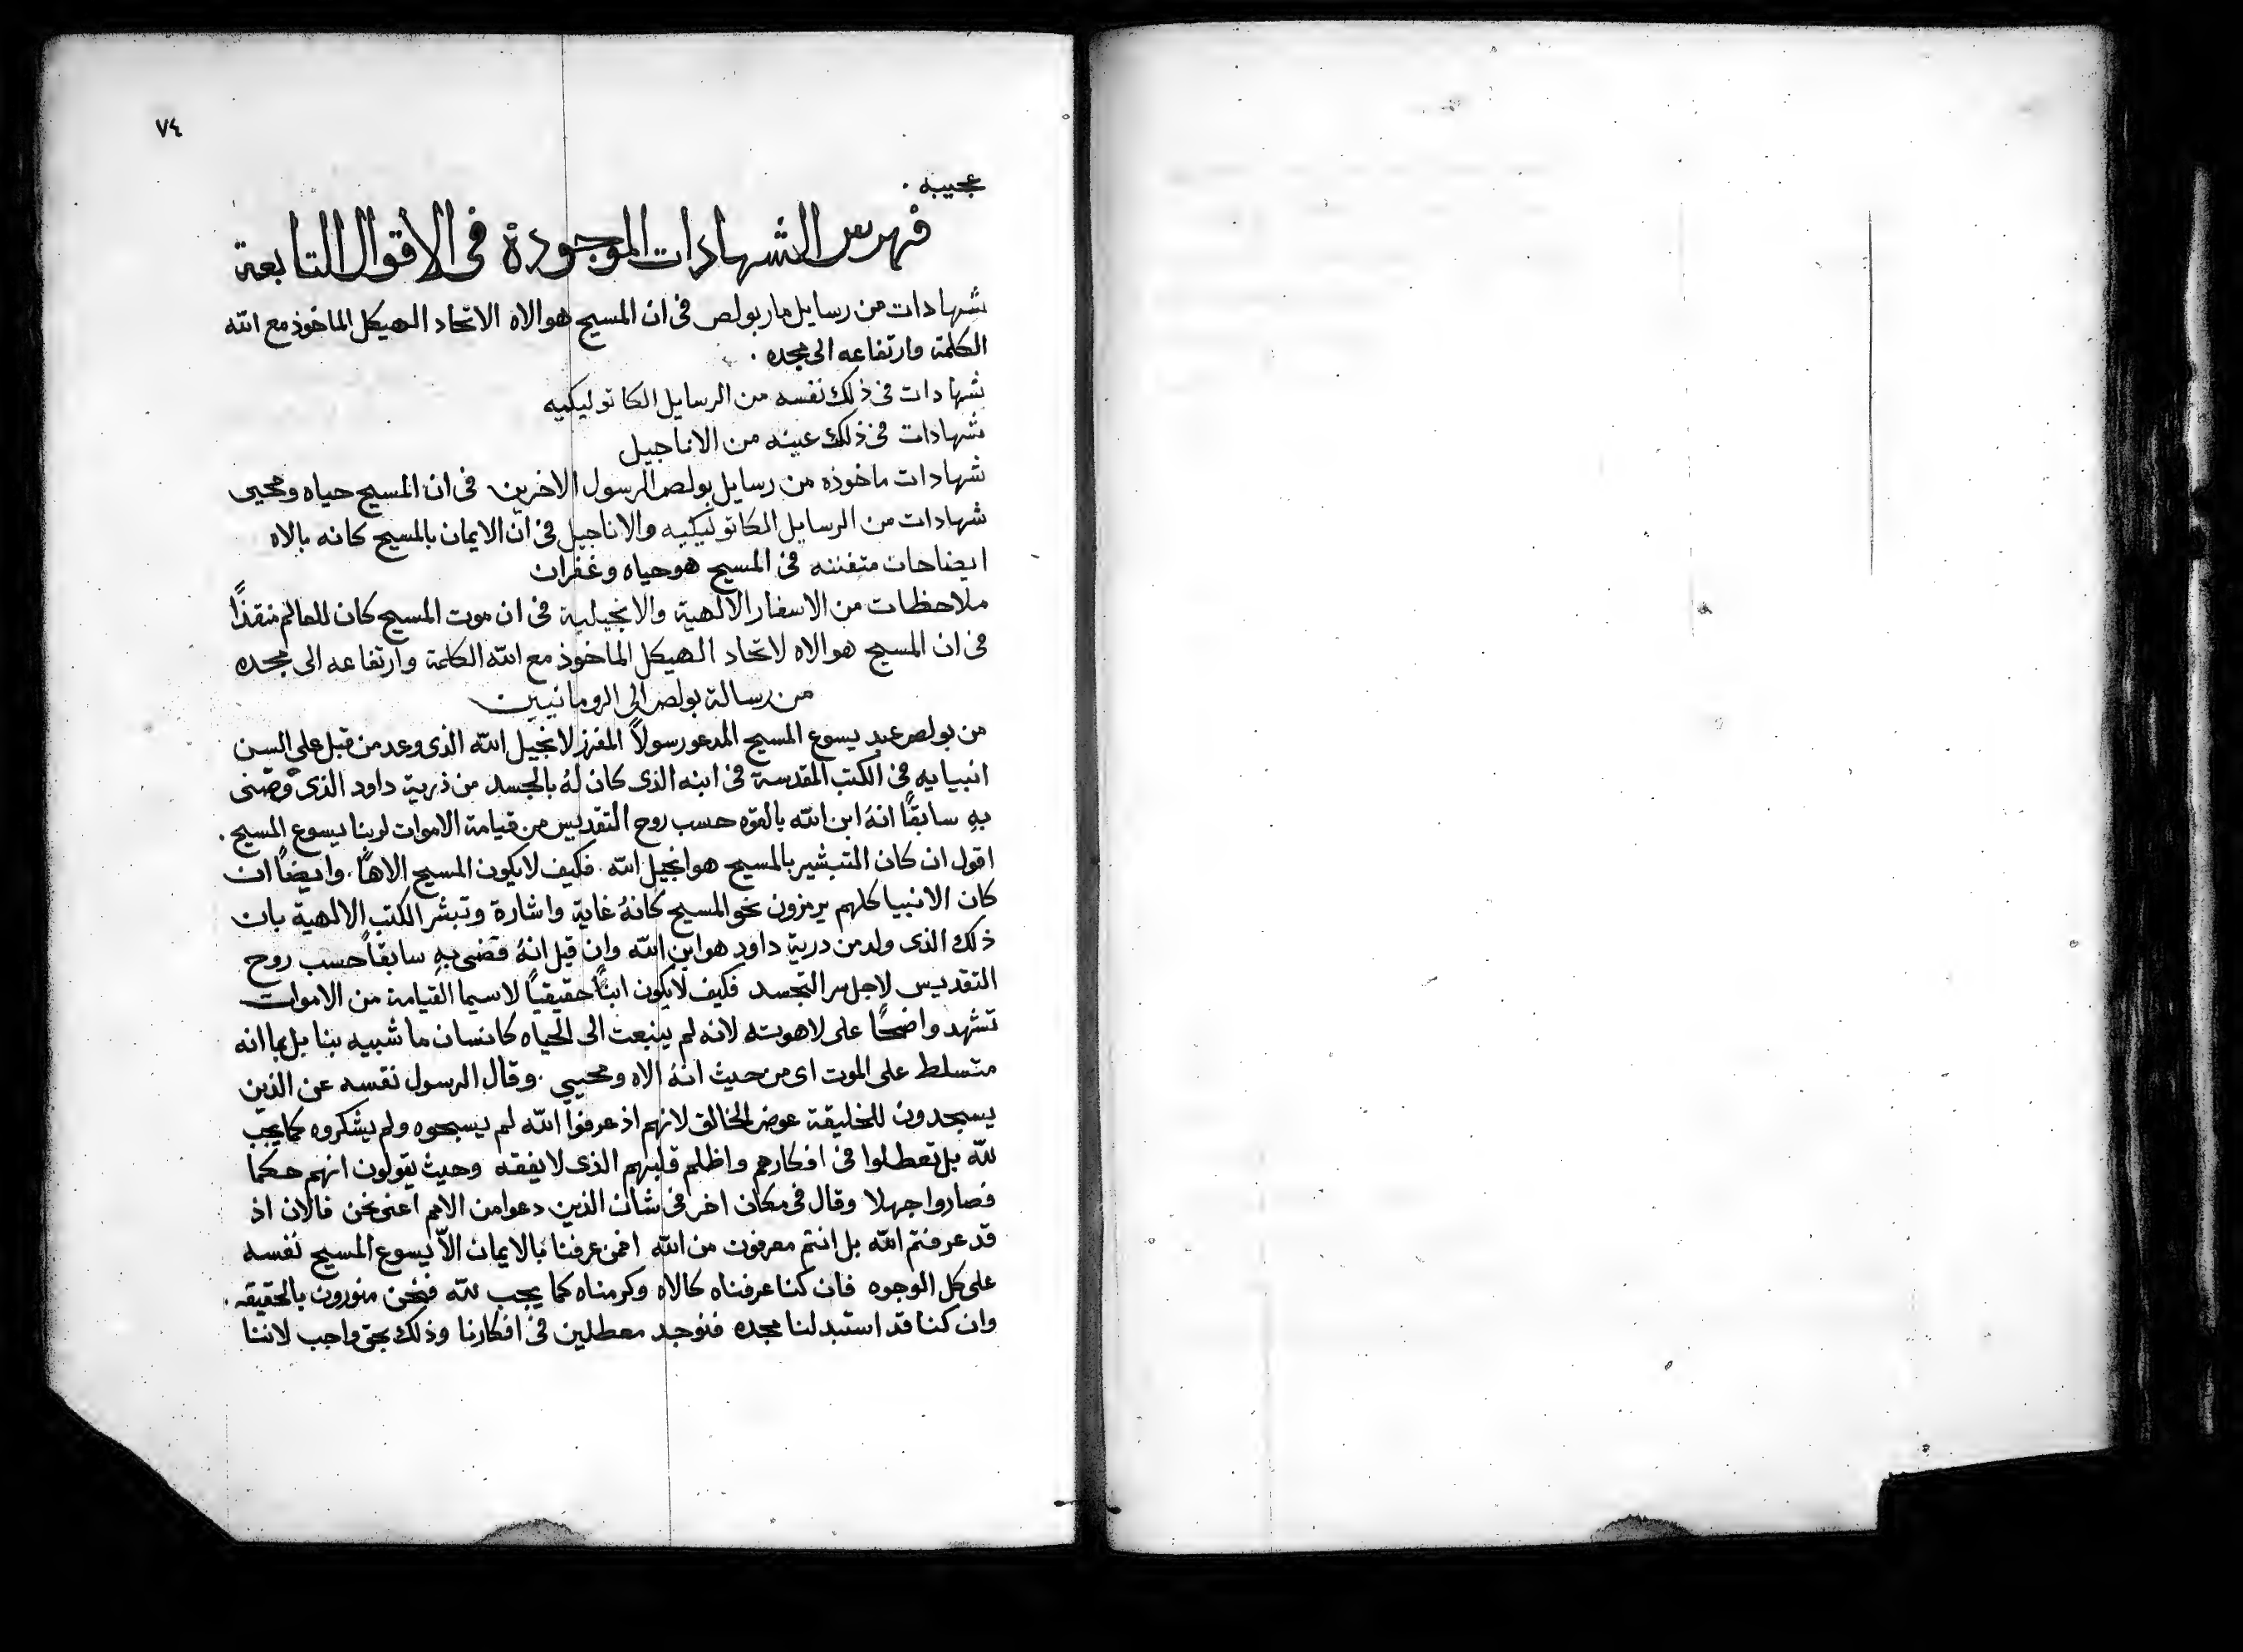 ٧٤
عجيبه ·
فهرس الشهادات الموجودة فى الاقوال التابعة
شهادات من رسايل مار بولص فى ان المسيح هو الاه الاتحاد الهيكل الماخوذ مع الله
الكلمة وارتفاعه الى مجده ·
شهادات فى ذلك نفسه من الرسايل الكاتوليكيه
شهادات فى ذلك عينه من الاناجيل
شهادات ماخوذه من رسايل بولص الرسول الاخرين فى ان المسيح حياه ومحيى
شهادات من الرسايل الكاتوليكيه والاناجيل فى ان الايمان بالمسيح كانه بالاه
ايضاحات متفننه فى المسيح هو حياه وغفران
ملاحظات من الاسفار الالهية والانجيلية فى ان موت المسيح كان للعالم منقذًا
فى ان المسيح هو الاه لاتحاد الهيكل الماخوذ مع الله الكلمة وارتفاعه الى مجده
من رسالة بولص الى الرومانيين
من بولص عبد يسوع المسيح المدعو رسولاً المفرز لانجيل الله الذى وعد من قبل على السن
انبيايه فى الكتب المقدسة فى ابنه الذى كان لهُ بالجسد من ذرية داود الذى قضى
بهِ سابقًا انهُ ابن الله بالقوه حسب روح التقديس من قيامة الاموات لربنا يسوع المسيح ·
اقول ان كان التبشير بالمسيح هو انجيل الله · فكيف لا يكون المسيح الاهًا · وايضًا ان
كان الانبيا كلهم يرمزون نحو المسيح كانهُ غاية واشارة وتبشر الكتب الالهية بان
ذلك الذى ولد من درية داود هو ابن الله وان قيل انهُ قضى بهِ سابقاً حسب روح
التقديس لاجل سر التجسد فكيف لا يكون ابنًا حقيقيًا لاسيما القيامة من الاموات
تشهد واضحًا على لاهوته لانه لم ينبعت الى الحياه كانسان ما شبيه بنا بل بما انه
متسلط على الموت اى من حيث انهُ الاه ومحيي · وقال الرسول نفسه عن الذين
يسجدون للخليقة عوض الخالق لانهم اذ عرفوا الله لم يسبحوه ولم يشكروه كما يجب
لله بل تعطلوا فى افكارهم واظلم قلبهم الذى لا يفقه وحيث يقولون انهم حكما
فصاروا جهلا وقال فى مكان اخر فى شان الذين دعوا من الامم اعنى نحن فالان اذ
قد عرفتم الله بل انتم معرفون من الله افمن عرفنا بالايمان الاّ يسوع المسيح نفسه
على كل الوجوه فان كنا عرفناه كالاه وكرمناه كما يجب لله فنحن منورون بالحقيقه ·
وان كنا قد استبدلنا مجده فنوجد معطلين فى افكارنا وذلك بحق واجب لاننا